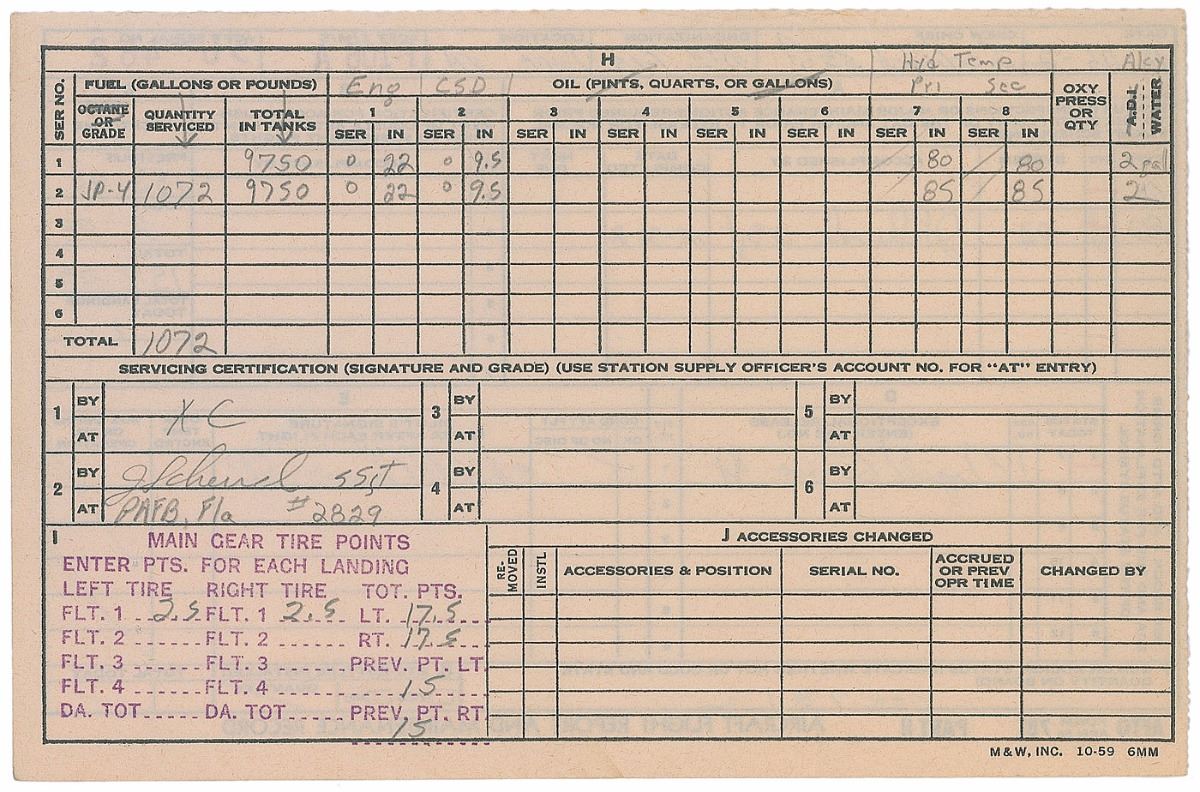 H
Hyd Temp
Alcy
SER NO.
FUEL (GALLONS OR POUNDS)
Eng CSD
OIL (PINTS, QUARTS, OR GALLONS)
Pri Sec
OXY PRESS OR QTY
A.D.I. WATER
OCTANE OR GRADE
QUANTITY SERVICED
TOTAL IN TANKS
1 2 3 4 5 6 7 8
SER IN SER IN SER IN SER IN SER IN SER IN SER IN SER IN
1 9750 0 22 0 9.5 80 80 2 gal
2 JP-4 1072 9750 0 22 0 9.5 85 85 2
3
4
5
6
TOTAL 1072
SERVICING CERTIFICATION (SIGNATURE AND GRADE) (USE STATION SUPPLY OFFICER'S ACCOUNT NO. FOR "AT" ENTRY)
1 BY XC 3 BY 5 BY
AT AT AT
2 BY SSgt 4 BY 6 BY
AT PAFB, Fla #2829 AT AT
I
MAIN GEAR TIRE POINTS
ENTER PTS. FOR EACH LANDING
LEFT TIRE RIGHT TIRE TOT. PTS.
FLT. 1 2.5 FLT. 1 2.5 LT. 17.5
FLT. 2 ...... FLT. 2 ...... RT. 17.5
FLT. 3 ...... FLT. 3 ...... PREV. PT. LT.
FLT. 4 ...... FLT. 4 ...... 15
DA. TOT..... DA. TOT..... PREV. PT. RT.
15
J ACCESSORIES CHANGED
REMOVED
INSTL
ACCESSORIES & POSITION
SERIAL NO.
ACCRUED OR PREV OPR TIME
CHANGED BY
M&W, INC. 10-59 6MM